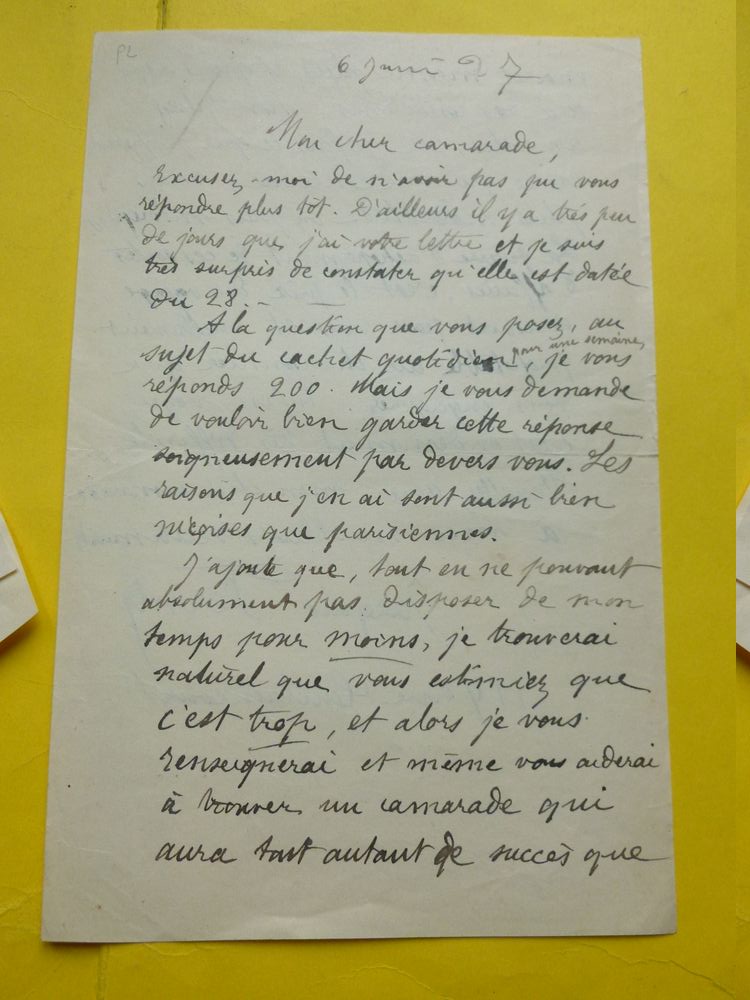 PL
6 Juin 27
Mon cher camarade,
Excusez-moi de n'avoir pas pu vous
répondre plus tôt. D'ailleurs il y a très peu
de jours que j'ai votre lettre et je suis
très surpris de constater qu'elle est datée
du 28. -
A la question que vous posez, au
sujet du cachet quotidien, pour une semaine, je vous
réponds 200. Mais je vous demande
de vouloir bien garder cette réponse
soigneusement par devers vous. Les
raisons que j'en ai sont aussi bien
niçoises que parisiennes.
J'ajoute que, tout en ne pouvant
absolument pas disposer de mon
temps pour moins, je trouverai
naturel que vous estimiez que
c'est trop, et alors je vous
renseignerai et même vous aiderai
à trouver un camarade qui
aura tout autant de succès que